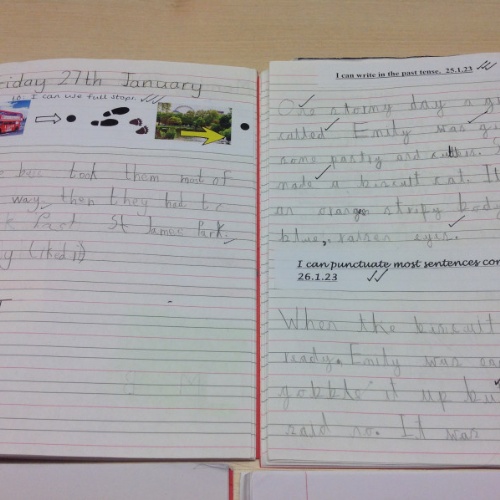 Friday 27th January
LO: I can use full stops.
e bus took them most of
way, then they had to
k Past St James Park.
y (liked it)
I can write in the past tense. 25.1.23
One stormy day a g
called Emily was g
some pastry and
made a biscuit cat. It
an orange stripy body
blue, raisen eyes.
I can punctuate most sentences cor
26.1.23
When the biscuit
ready, Emily was ea
gobble it up bu
said so. It was